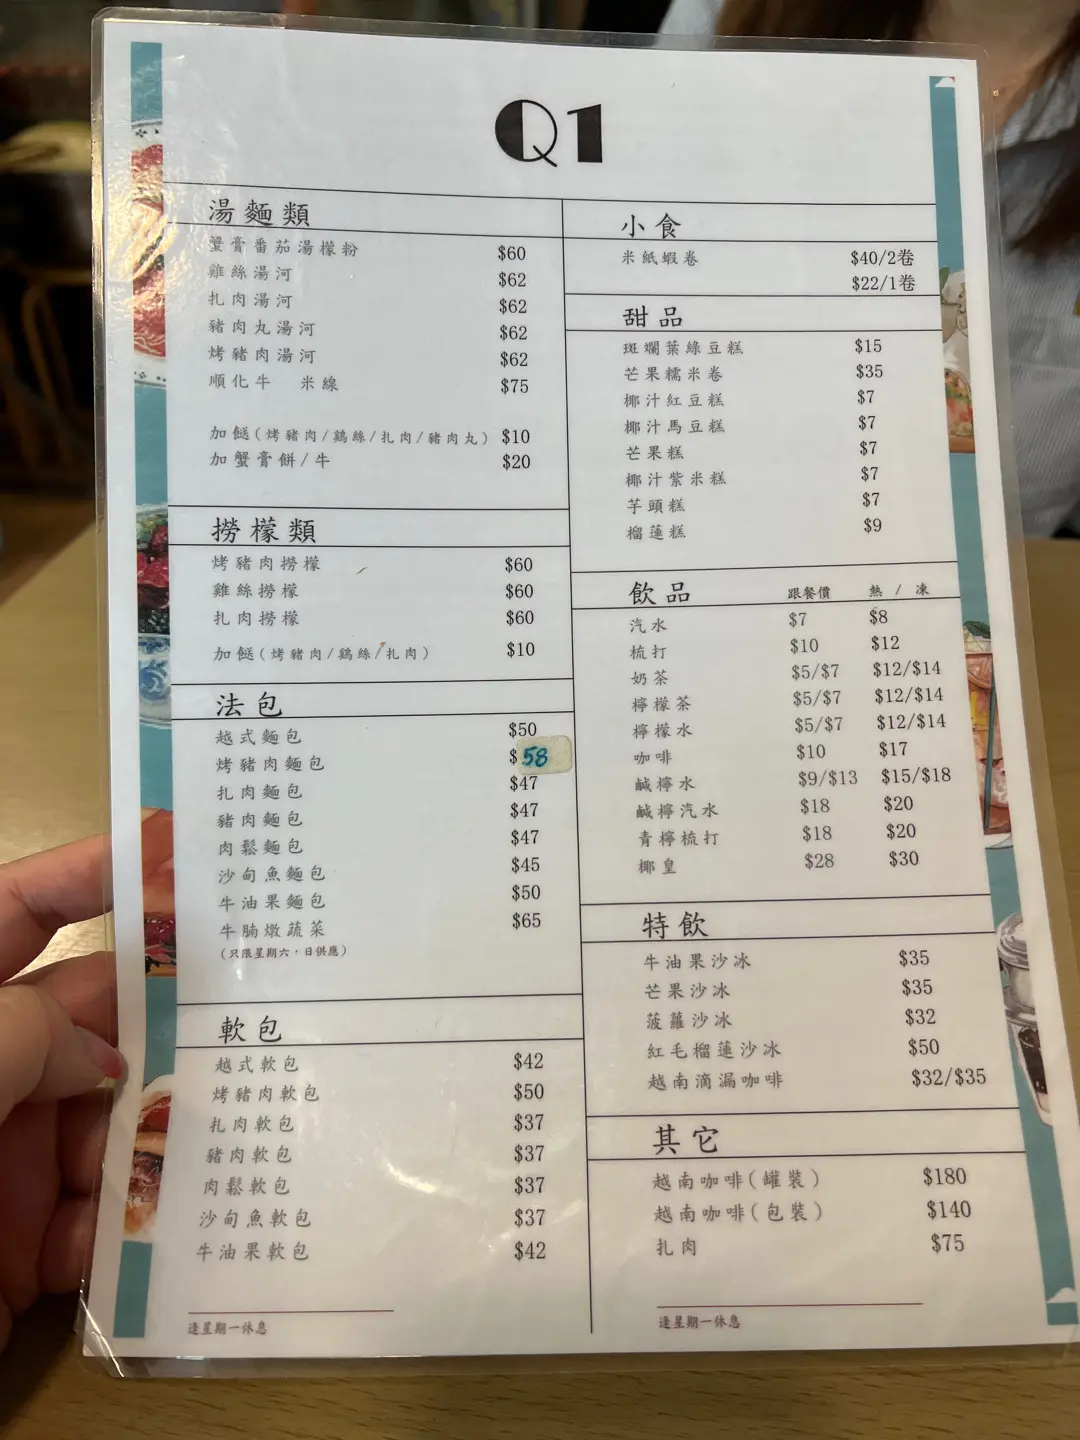 Q1
湯麵類
蟹膏番茄湯檬粉 $60
雞絲湯河 $62
扎肉湯河 $62
豬肉丸湯河 $62
烤豬肉湯河 $62
順化牛 米線 $75
加餸(烤豬肉/鷄絲/扎肉/豬肉丸) $10
加蟹膏餅/牛 $20
撈檬類
烤豬肉撈檬 $60
雞絲撈檬 $60
扎肉撈檬 $60
加餸(烤豬肉/鷄絲/扎肉) $10
法包
越式麵包 $50
烤豬肉麵包 $58
扎肉麵包 $47
豬肉麵包 $47
肉鬆麵包 $47
沙甸魚麵包 $45
牛油果麵包 $50
牛腩燉蔬菜 $65
(只限星期六，日供應)
軟包
越式軟包 $42
烤豬肉軟包 $50
扎肉軟包 $37
豬肉軟包 $37
肉鬆軟包 $37
沙甸魚軟包 $37
牛油果軟包 $42
逢星期一休息
小食
米紙蝦卷 $40/2卷
$22/1卷
甜品
斑斕葉綠豆糕 $15
芒果糯米卷 $35
椰汁紅豆糕 $7
椰汁馬豆糕 $7
芒果糕 $7
椰汁紫米糕 $7
芋頭糕 $7
榴蓮糕 $9
飲品 跟餐價 熱 / 凍
汽水 $7 $8
梳打 $10 $12
奶茶 $5/$7 $12/$14
檸檬茶 $5/$7 $12/$14
檸檬水 $5/$7 $12/$14
咖啡 $10 $17
鹹檸水 $9/$13 $15/$18
鹹檸汽水 $18 $20
青檸梳打 $18 $20
椰皇 $28 $30
特飲
牛油果沙冰 $35
芒果沙冰 $35
菠蘿沙冰 $32
紅毛榴蓮沙冰 $50
越南滴漏咖啡 $32/$35
其它
越南咖啡(罐裝) $180
越南咖啡(包裝) $140
扎肉 $75
逢星期一休息